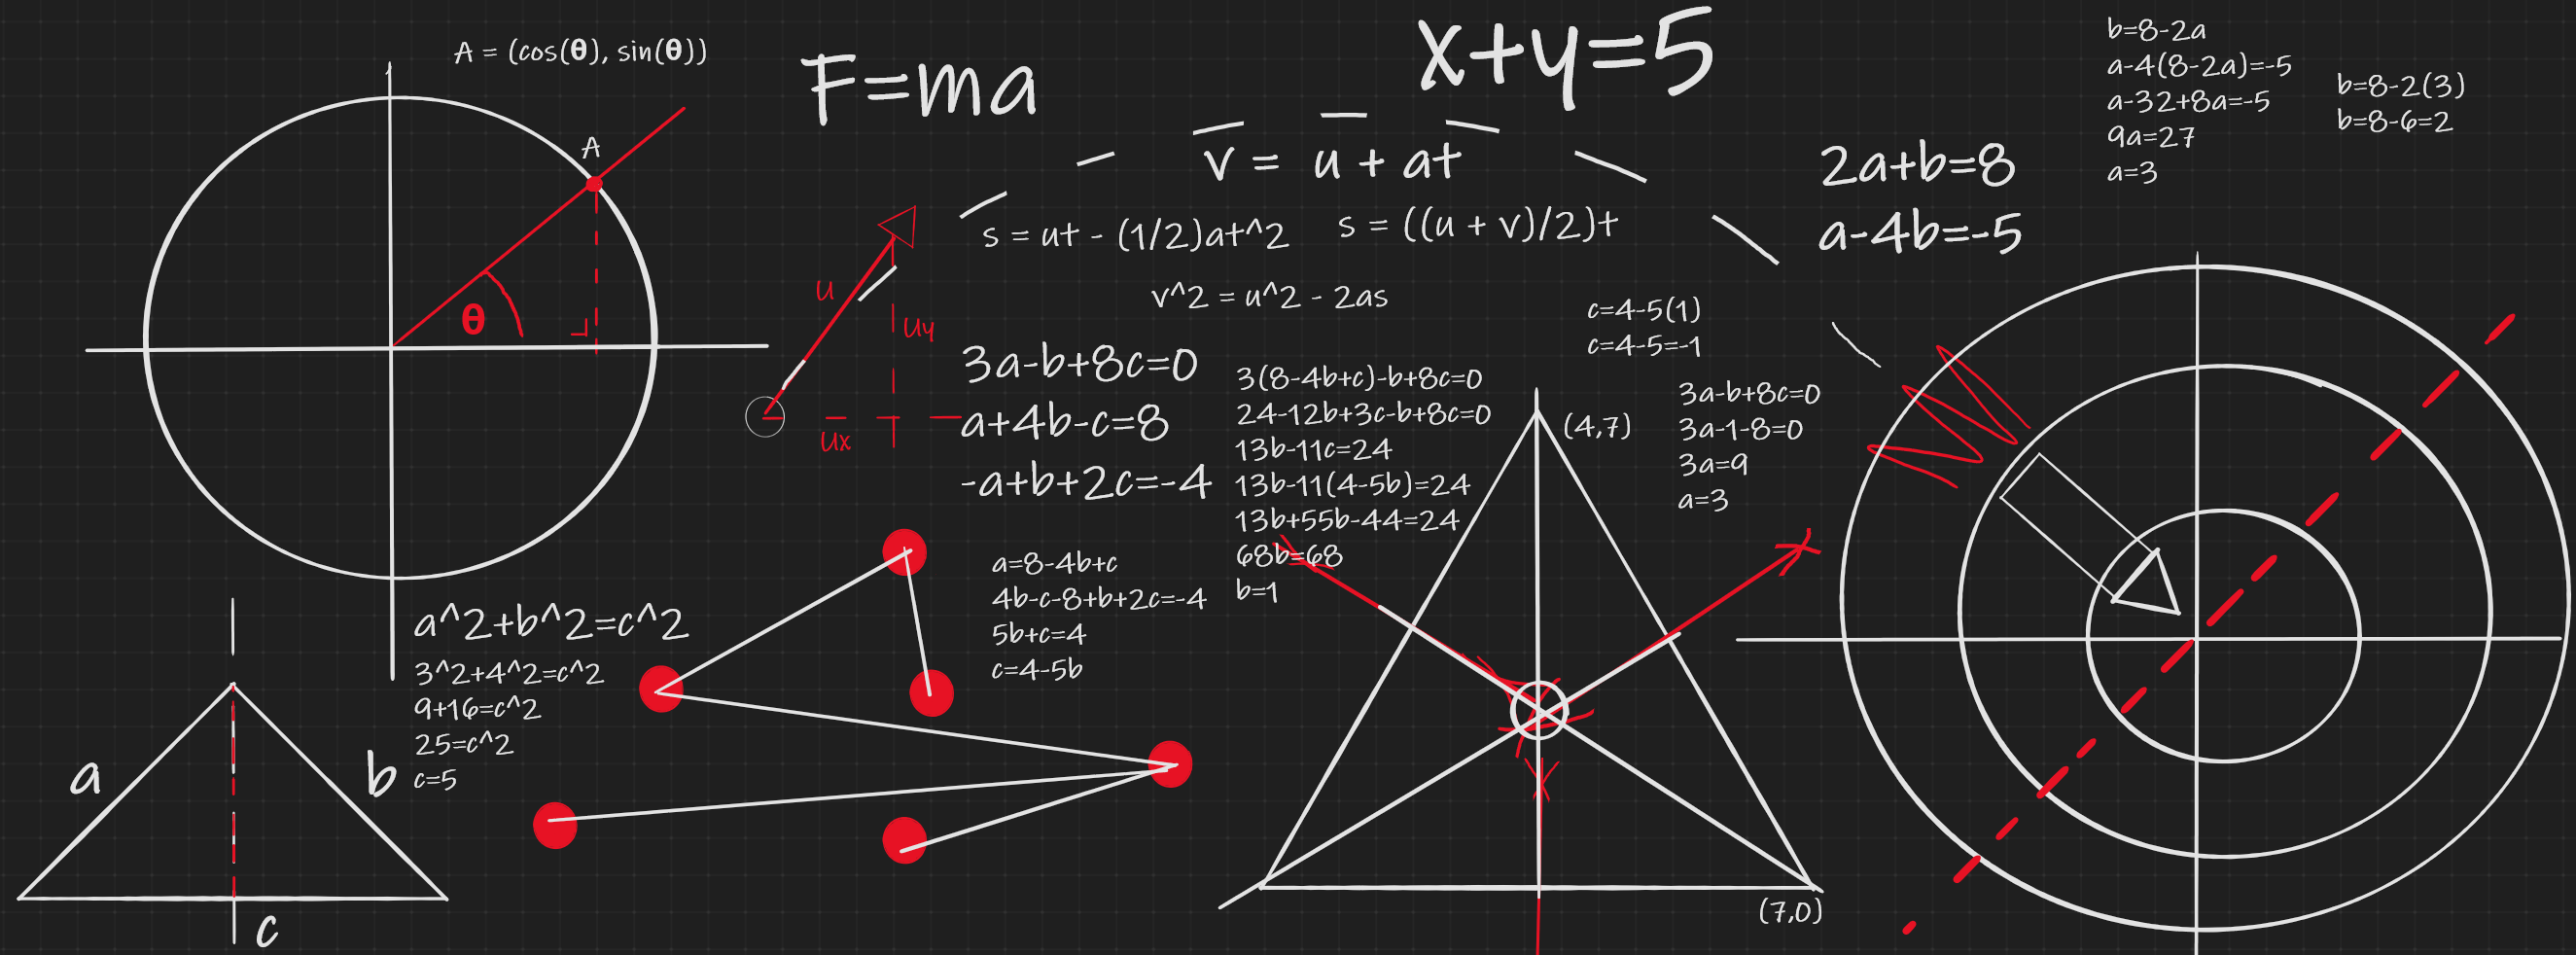 A = (cos(θ), sin(θ))
A
θ
F=ma
x+y=5
v = u + at
s = ut - (1/2)at^2
s = ((u + v)/2)t
v^2 = u^2 - 2as
u
uy
ux
2a+b=8
a-4b=-5
b=8-2a
a-4(8-2a)=-5
a-32+8a=-5
9a=27
a=3
b=8-2(3)
b=8-6=2
3a-b+8c=0
a+4b-c=8
-a+b+2c=-4
a=8-4b+c
4b-c-8+b+2c=-4
5b+c=4
c=4-5b
3(8-4b+c)-b+8c=0
24-12b+3c-b+8c=0
13b-11c=24
13b-11(4-5b)=24
13b+55b-44=24
68b=68
b=1
c=4-5(1)
c=4-5=-1
3a-b+8c=0
3a-1-8=0
3a=9
a=3
(4,7)
(7,0)
a^2+b^2=c^2
3^2+4^2=c^2
9+16=c^2
25=c^2
c=5
a
b
c